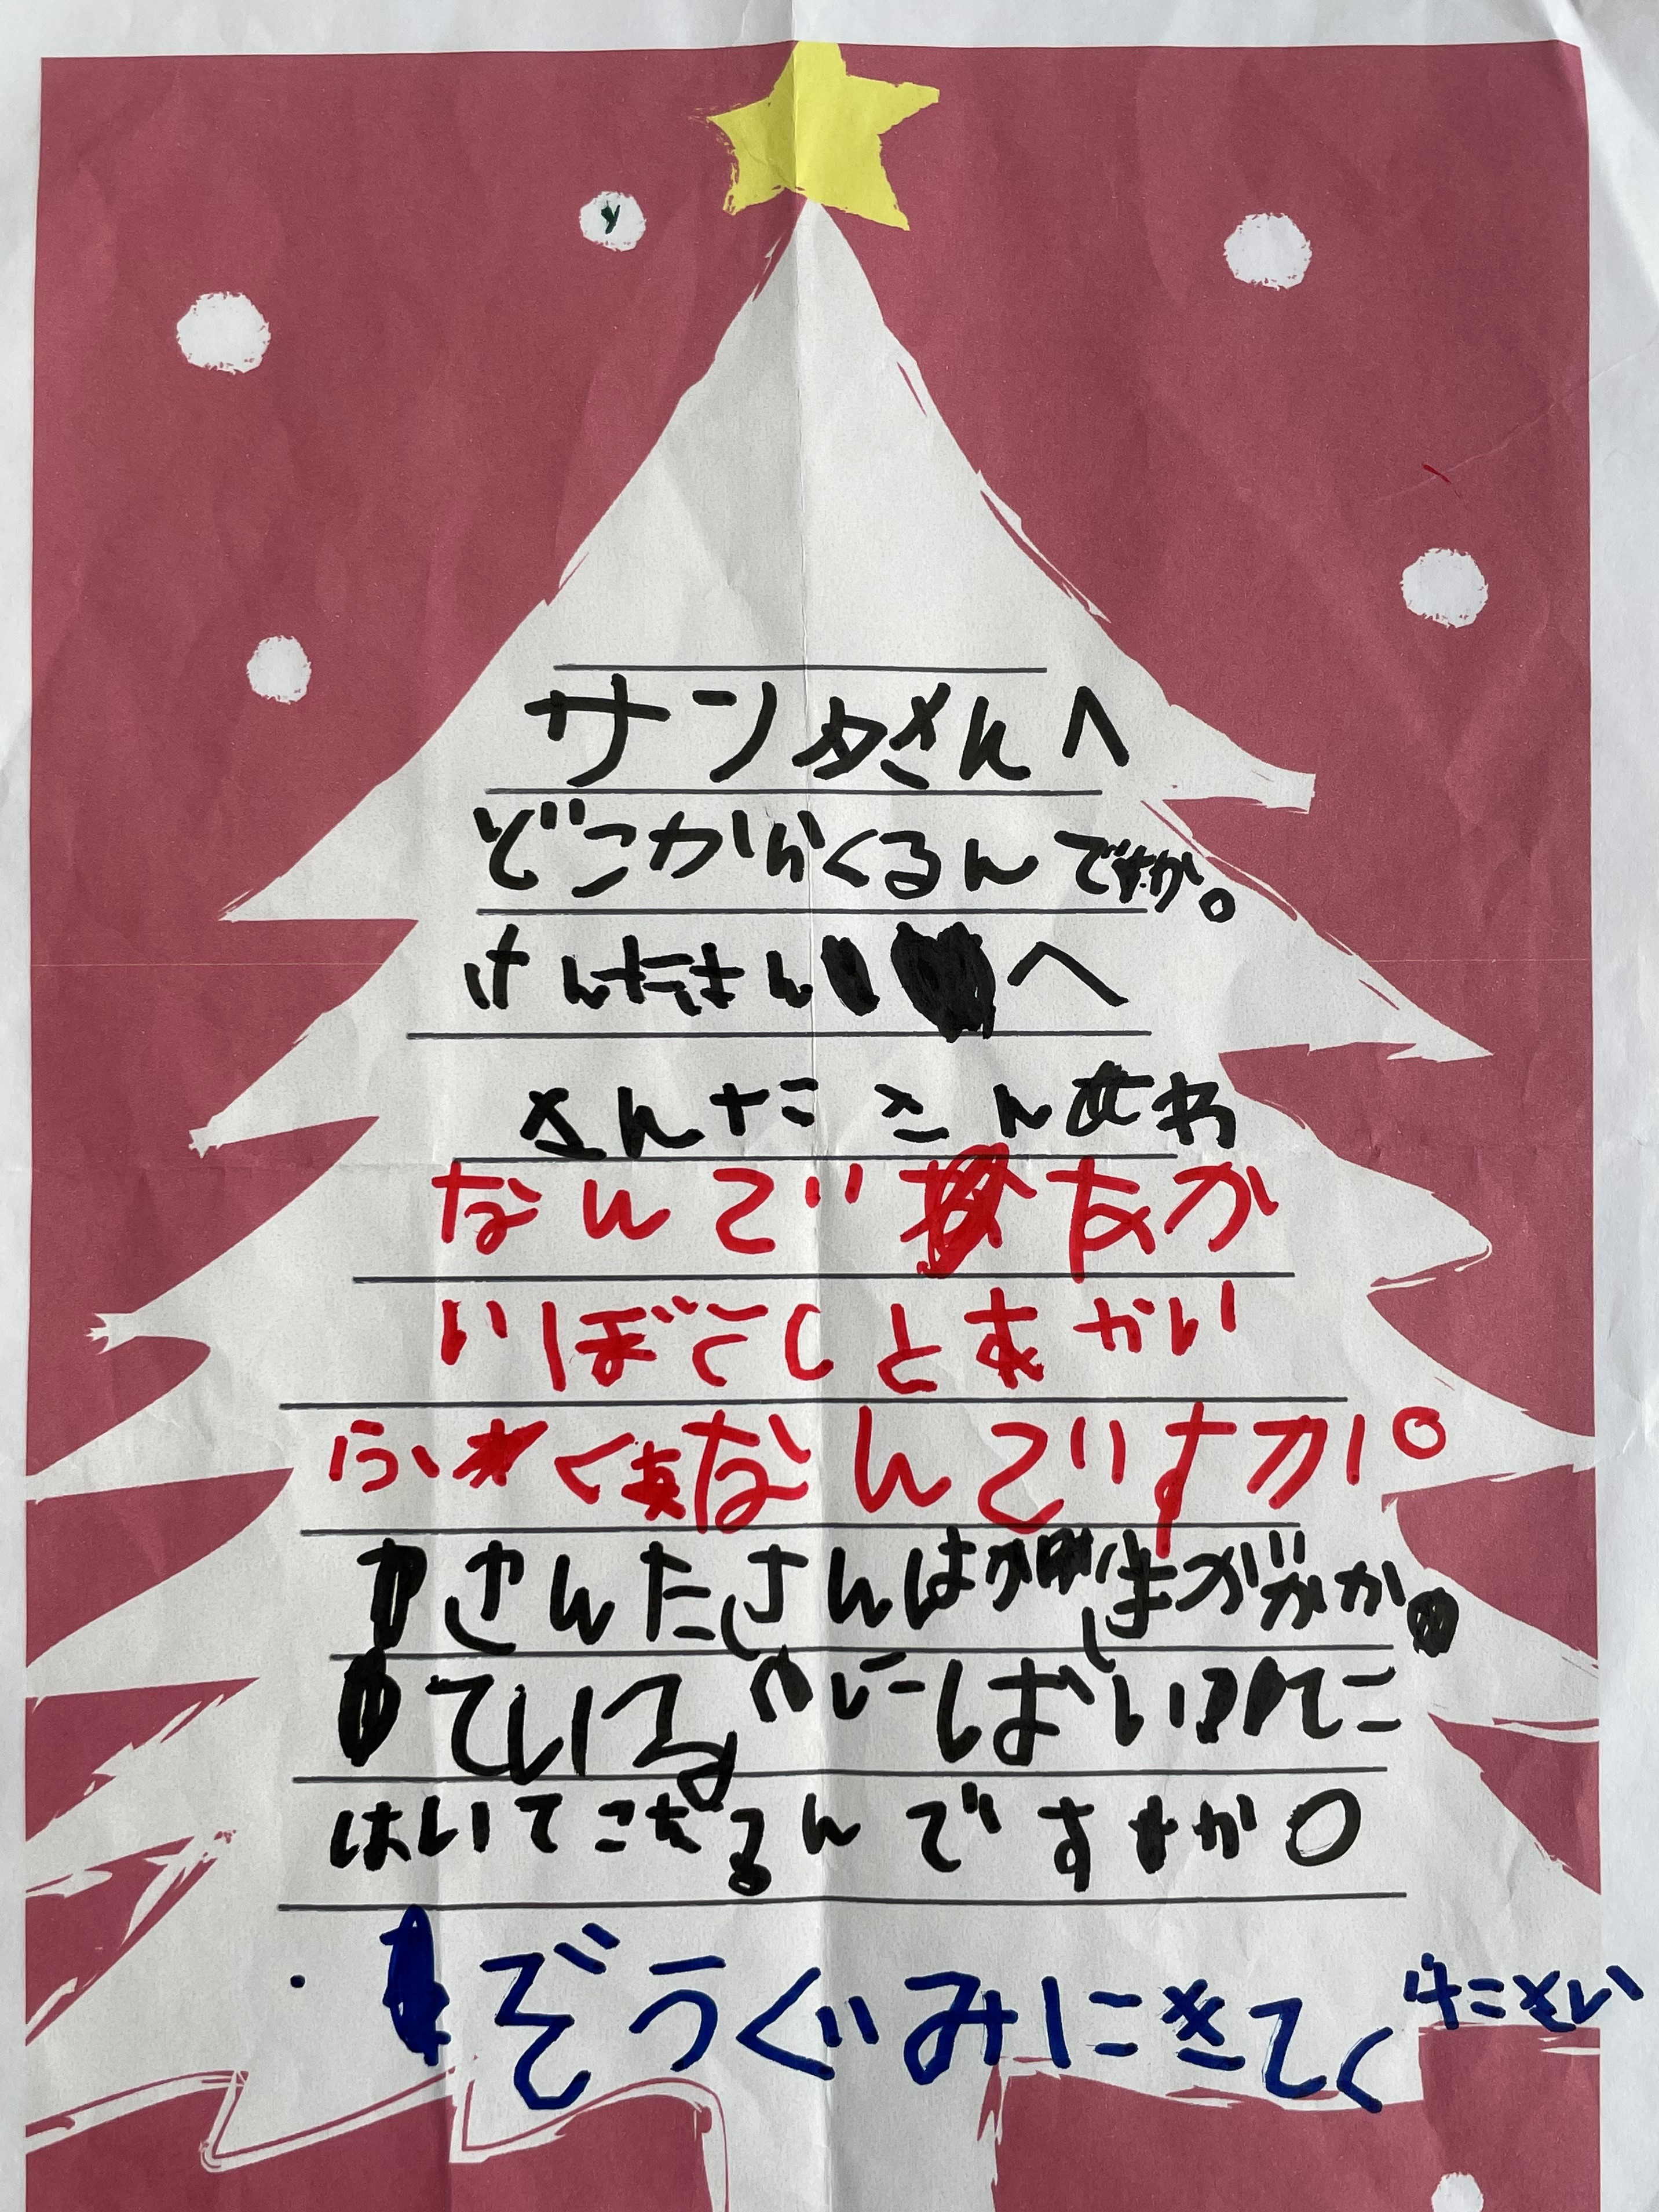 サンタさんへ
どこからくるんですか。
さんたさんへ
さんたさんわ
なんであか
いぼてしとあかい
ふくなんですか。
さんたさんはがはががか
ている
はいてこれるんですか。
ぞうぐみにきてください